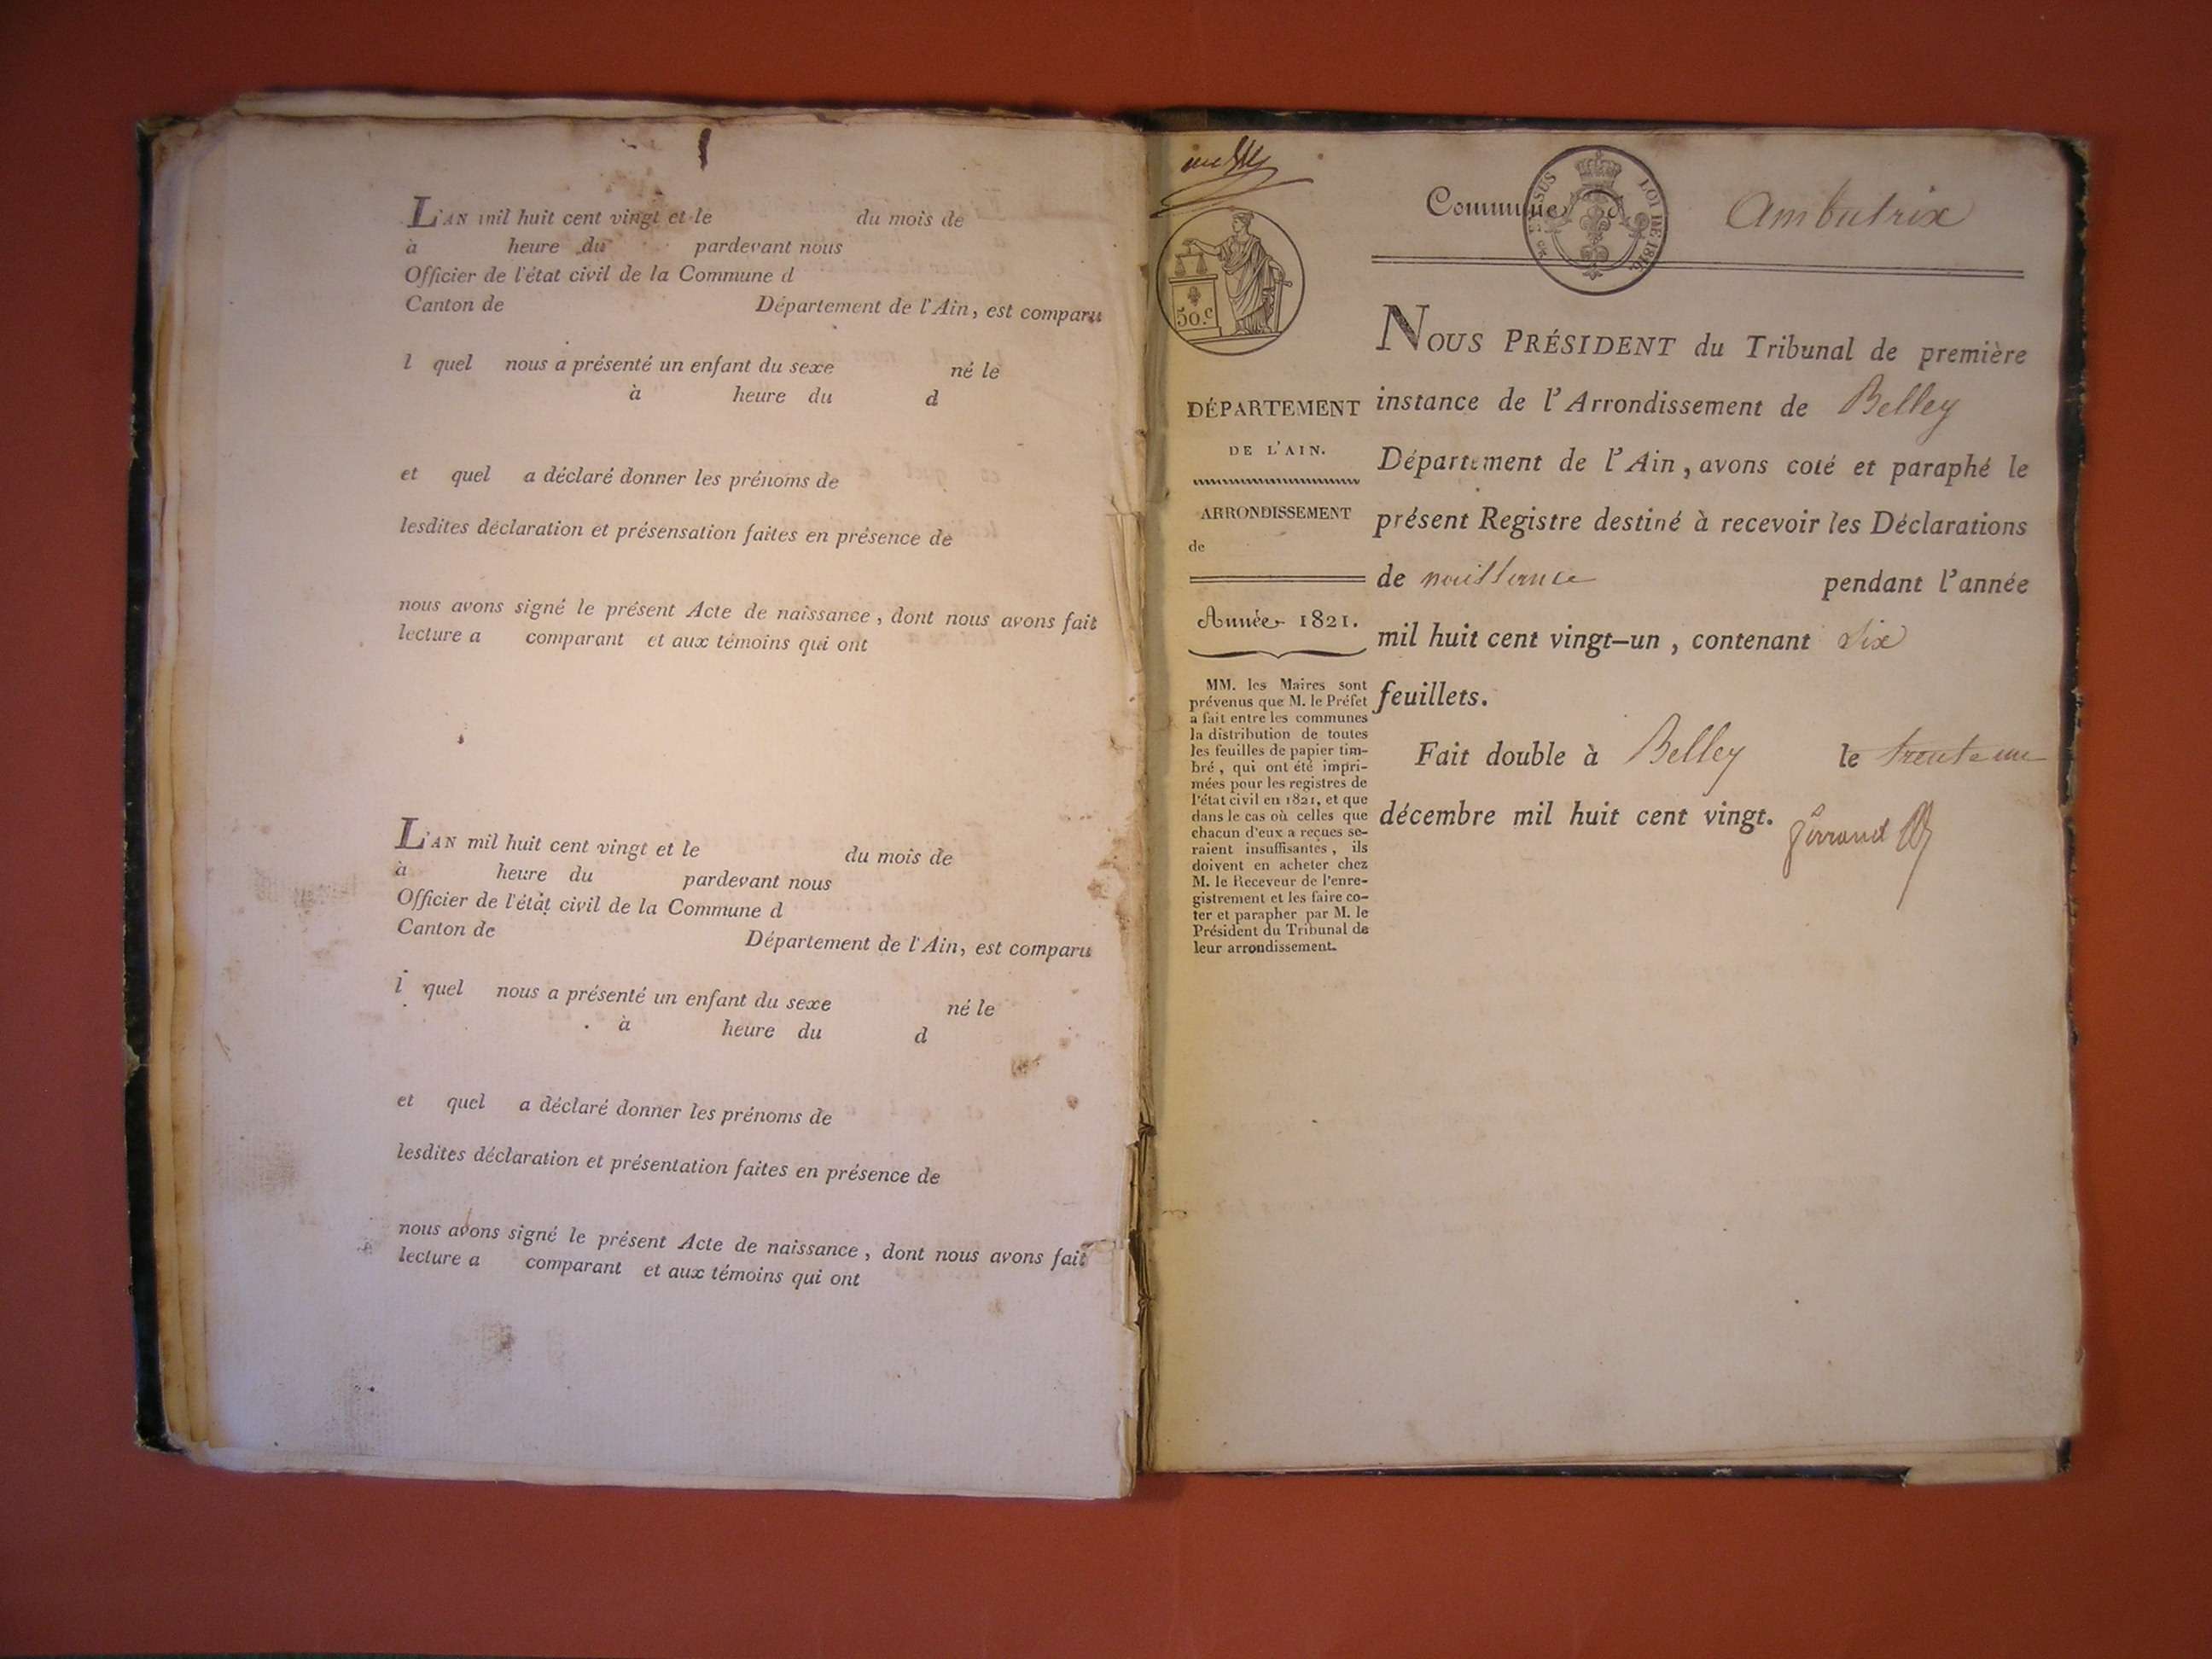 L'AN mil huit cent vingt et le du mois de
à heure du pardevant nous
Officier de l'état civil de la Commune d
Canton de Département de l'Ain, est comparu
l quel nous a présenté un enfant du sexe né le
à heure du d
et quel a déclaré donner les prénoms de
lesdites déclaration et présensation faites en présence de
nous avons signé le présent Acte de naissance, dont nous avons fait
lecture a comparant et aux témoins qui ont
L'AN mil huit cent vingt et le du mois de
à heure du pardevant nous
Officier de l'état civil de la Commune d
Canton de Département de l'Ain, est comparu
l quel nous a présenté un enfant du sexe né le
à heure du d
et quel a déclaré donner les prénoms de
lesdites déclaration et présentation faites en présence de
nous avons signé le présent Acte de naissance, dont nous avons fait
lecture a comparant et aux témoins qui ont
Commune Ambutrix
LOI DE 1816
50.c
DÉPARTEMENT
DE L'AIN.
ARRONDISSEMENT
de
Année 1821.
MM. les Maires sont
prévenus que M. le Préfet
a fait entre les communes
la distribution de toutes
les feuilles de papier tim-
bré, qui ont été impri-
mées pour les registres de
l'état civil en 1821, et que
dans le cas où celles que
chacun d'eux a reçues se-
raient insuffisantes, ils
doivent en acheter chez
M. le Receveur de l'enre-
gistrement et les faire co-
ter et parapher par M. le
Président du Tribunal de
leur arrondissement.
NOUS PRÉSIDENT du Tribunal de première
instance de l'Arrondissement de Belley
Département de l'Ain, avons coté et paraphé le
présent Registre destiné à recevoir les Déclarations
de naissance pendant l'année
mil huit cent vingt-un, contenant Six
feuillets.
Fait double à Belley le trente un
décembre mil huit cent vingt.